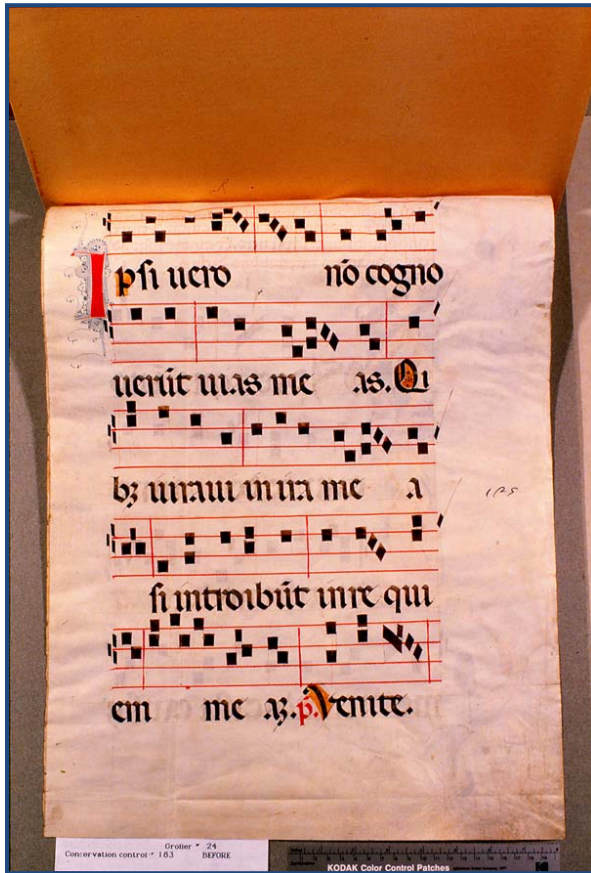 Ipsi uero nō cogno
uerūt uias me as. Qui
bꝫ iuraui in ira me a
si introibūt in re qui
em me aꝫ. p̄. Venite.
Grolier # 24
Conservation control # 183 BEFORE
KODAK Color Control Patches